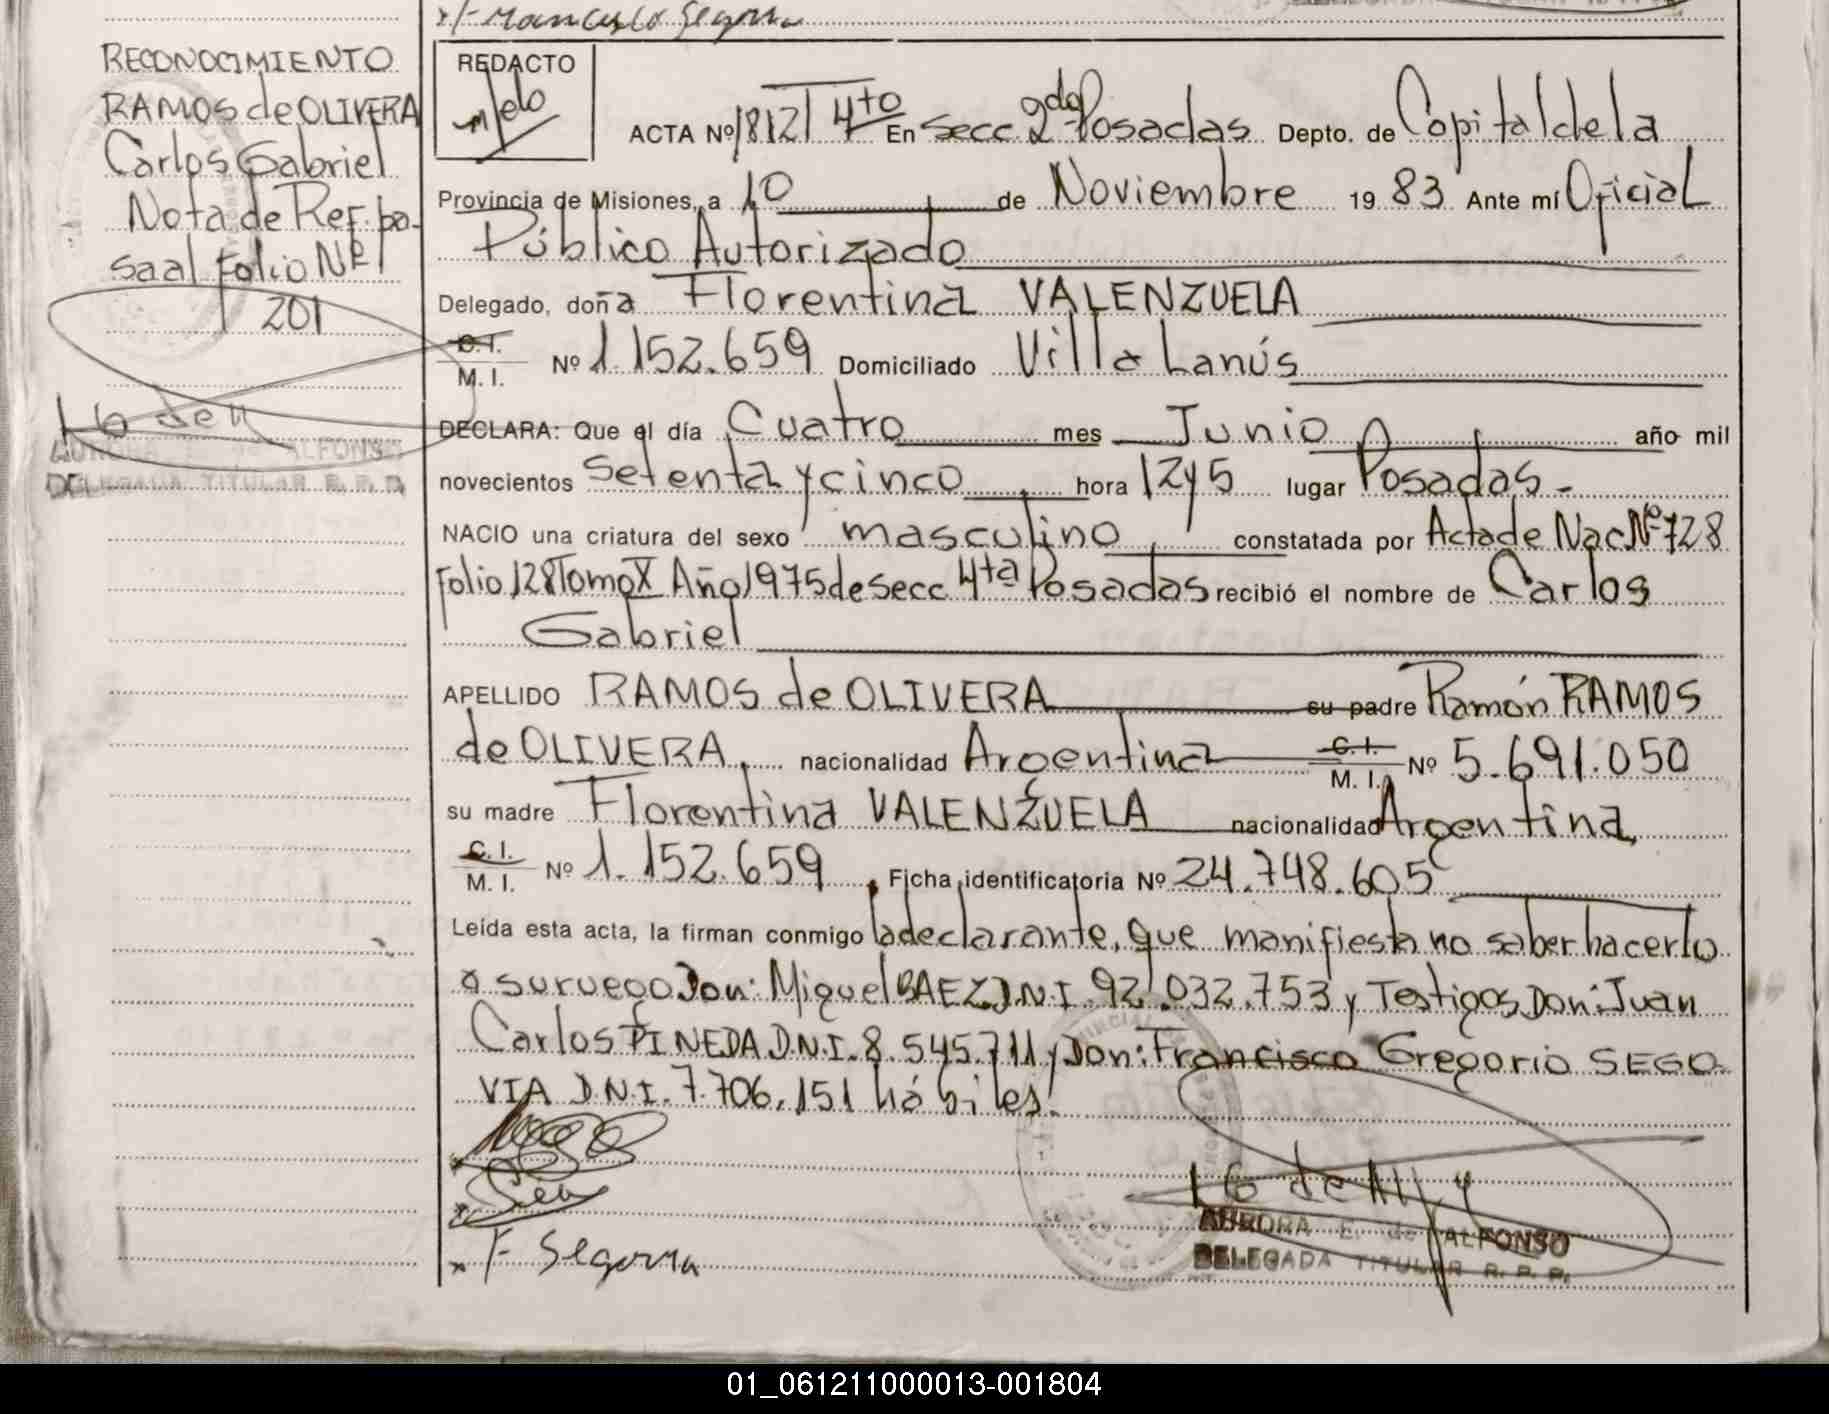 RECONOCIMIENTO
RAMOS de OLIVERA
Carlos Gabriel
Nota de Ref. pa-
sa al Folio Nº
201
AURORA E. de ALFONSO
DELEGADA TITULAR R. P. P.
REDACTO
Melo
ACTA Nº 1812 | 4to En Secc. 2da Posadas Depto. de Capital de la
Provincia de Misiones, a 10 de Noviembre 19 83 Ante mí Oficial
Público Autorizado
Delegado, doña Florentina VALENZUELA
C.I.
M. I. Nº 1.152.659 Domiciliado Villa Lanús
DECLARA: Que el día Cuatro mes Junio año mil
novecientos Setenta y cinco hora 12 y 5 lugar Posadas.-
NACIO una criatura del sexo masculino constatada por Acta de Nac. Nº 728
Folio 128 Tomo X Año 1975 de Secc. 4ta Posadas recibió el nombre de Carlos
Gabriel
APELLIDO RAMOS de OLIVERA su padre Ramón RAMOS
de OLIVERA, nacionalidad Argentina C.I.
M. I. Nº 5.691.050
su madre Florentina VALENZUELA nacionalidad Argentina
C.I.
M. I. Nº 1.152.659, Ficha identificatoria Nº 24.748.605
Leída esta acta, la firman conmigo la declarante, que manifiesta no saber hacerlo
a su ruego Don: Miguel BAEZ D.N.I. 92.032.753 y Testigos Don: Juan
Carlos PINEDA D.N.I. 8.545.711 y Don: Francisco Gregorio SEGO
VIA D.N.I. 7.706.151 hábiles!
AURORA E. de ALFONSO
DELEGADA TITULAR R. P. P.
01_061211000013-001804